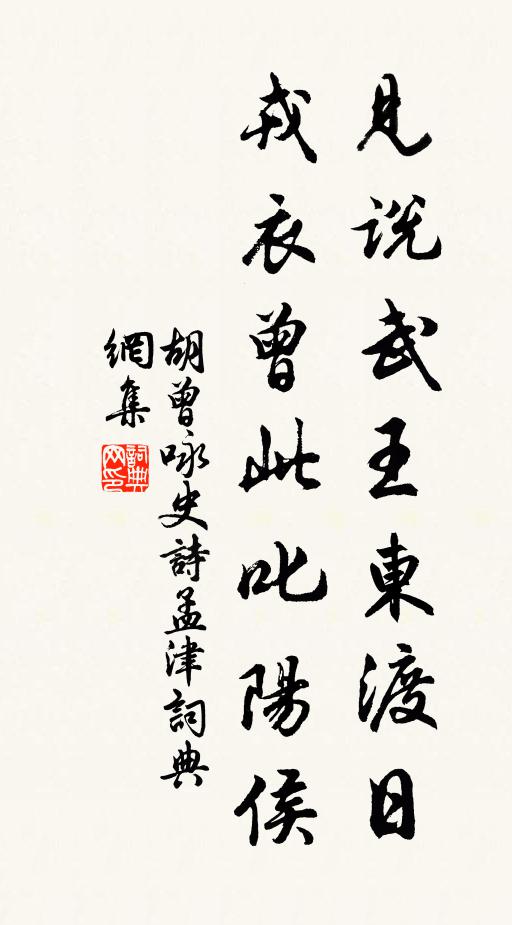 見説武王東渡日
戎衣曾此叱陽侯
胡曾咏史詩孟津詞典
網集
詞典
网印